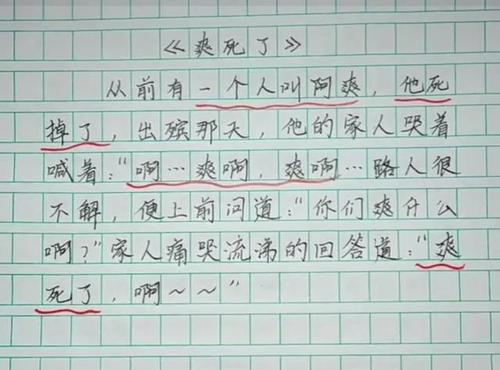 《爽死了》
从前有一个人叫阿爽，他死
掉了，出殡那天，他的家人哭着
喊着："啊…爽啊，爽啊…路人很
不解，便上前问道："你们爽什么
啊？"家人痛哭流涕的回答道："爽
死了，啊～～"